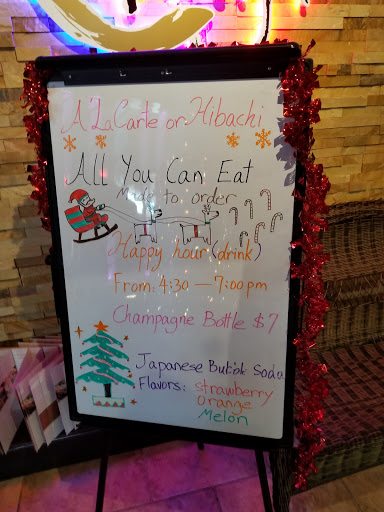 A La Carte or Hibachi
All You Can Eat
Made to order
Happy hour (drink)
From 4:30 — 7:00pm
Champagne Bottle $7
Japanese Soda
Flavors: Strawberry
Orange
Melon